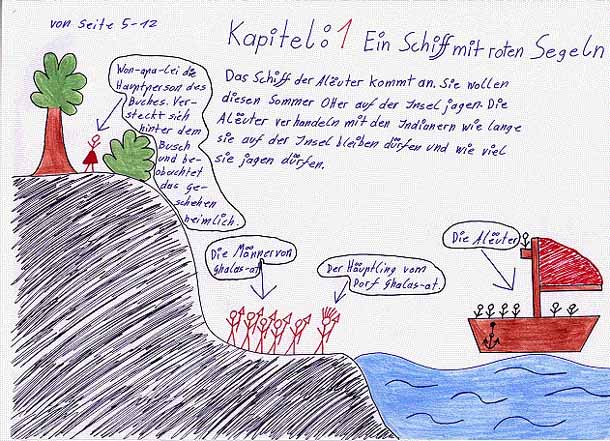 von Seite 5-12
Kapitel: 1 Ein Schiff mit roten Segeln
Won-apa-lei die
Hauptperson des
Buches. Ver-
steckt sich
hinter dem
Busch
und be-
obachtet
das ge-
schehen
heimlich.
Das Schiff der Alëuter kommt an. Sie wollen
diesen Sommer Otter auf der Insel jagen. Die
Alëuter verhandeln mit den Indianern wie lange
sie auf der Insel bleiben dürfen und wie viel
sie jagen dürfen.
Die Männer von
Ghalas-at
Der Häuptling vom
Dorf Ghalas-at.
Die Alëuter